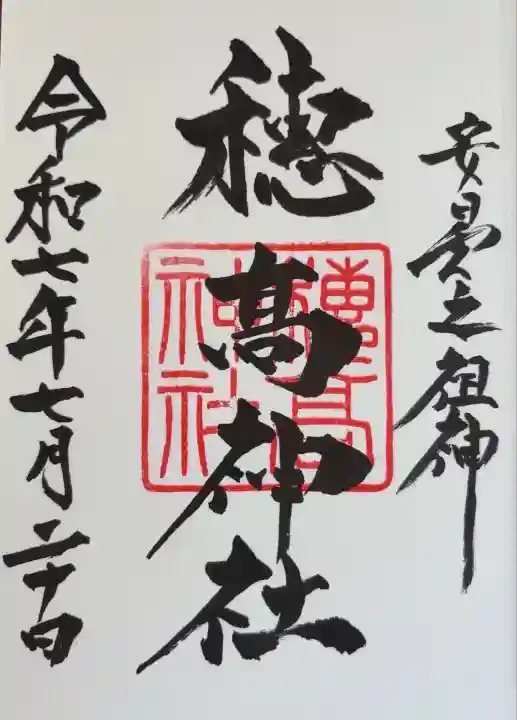 安曇之祖神
穂髙神社
穗高神社
令和七年七月二十日